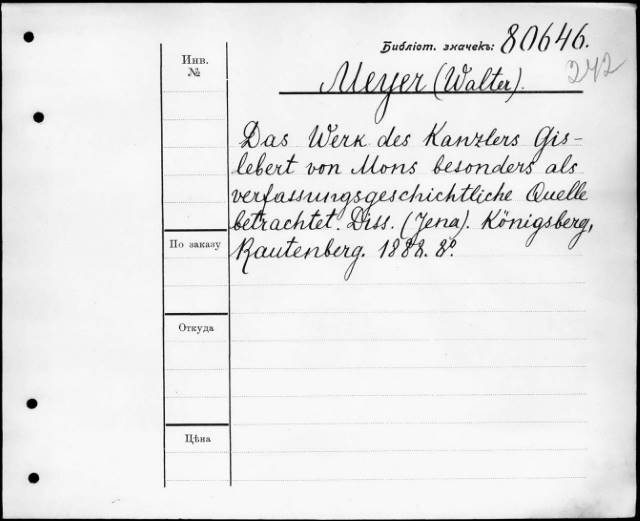 Библіот. значекъ: 80646.
242
Инв.
№
Meyer (Walter).
Das Werk des Kanzlers Gis-
lebert von Mons besonders als
verfassungsgeschichtliche Quelle
betrachtet. Diss. (Jena). Königsberg,
Rautenberg. 1888. 8°.
По заказу
Откуда
Цѣна